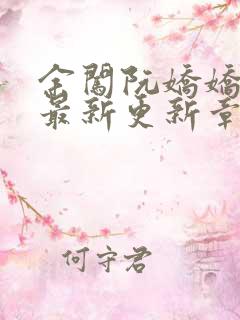 金閣阮嬌嬌
最新更新章
何守君